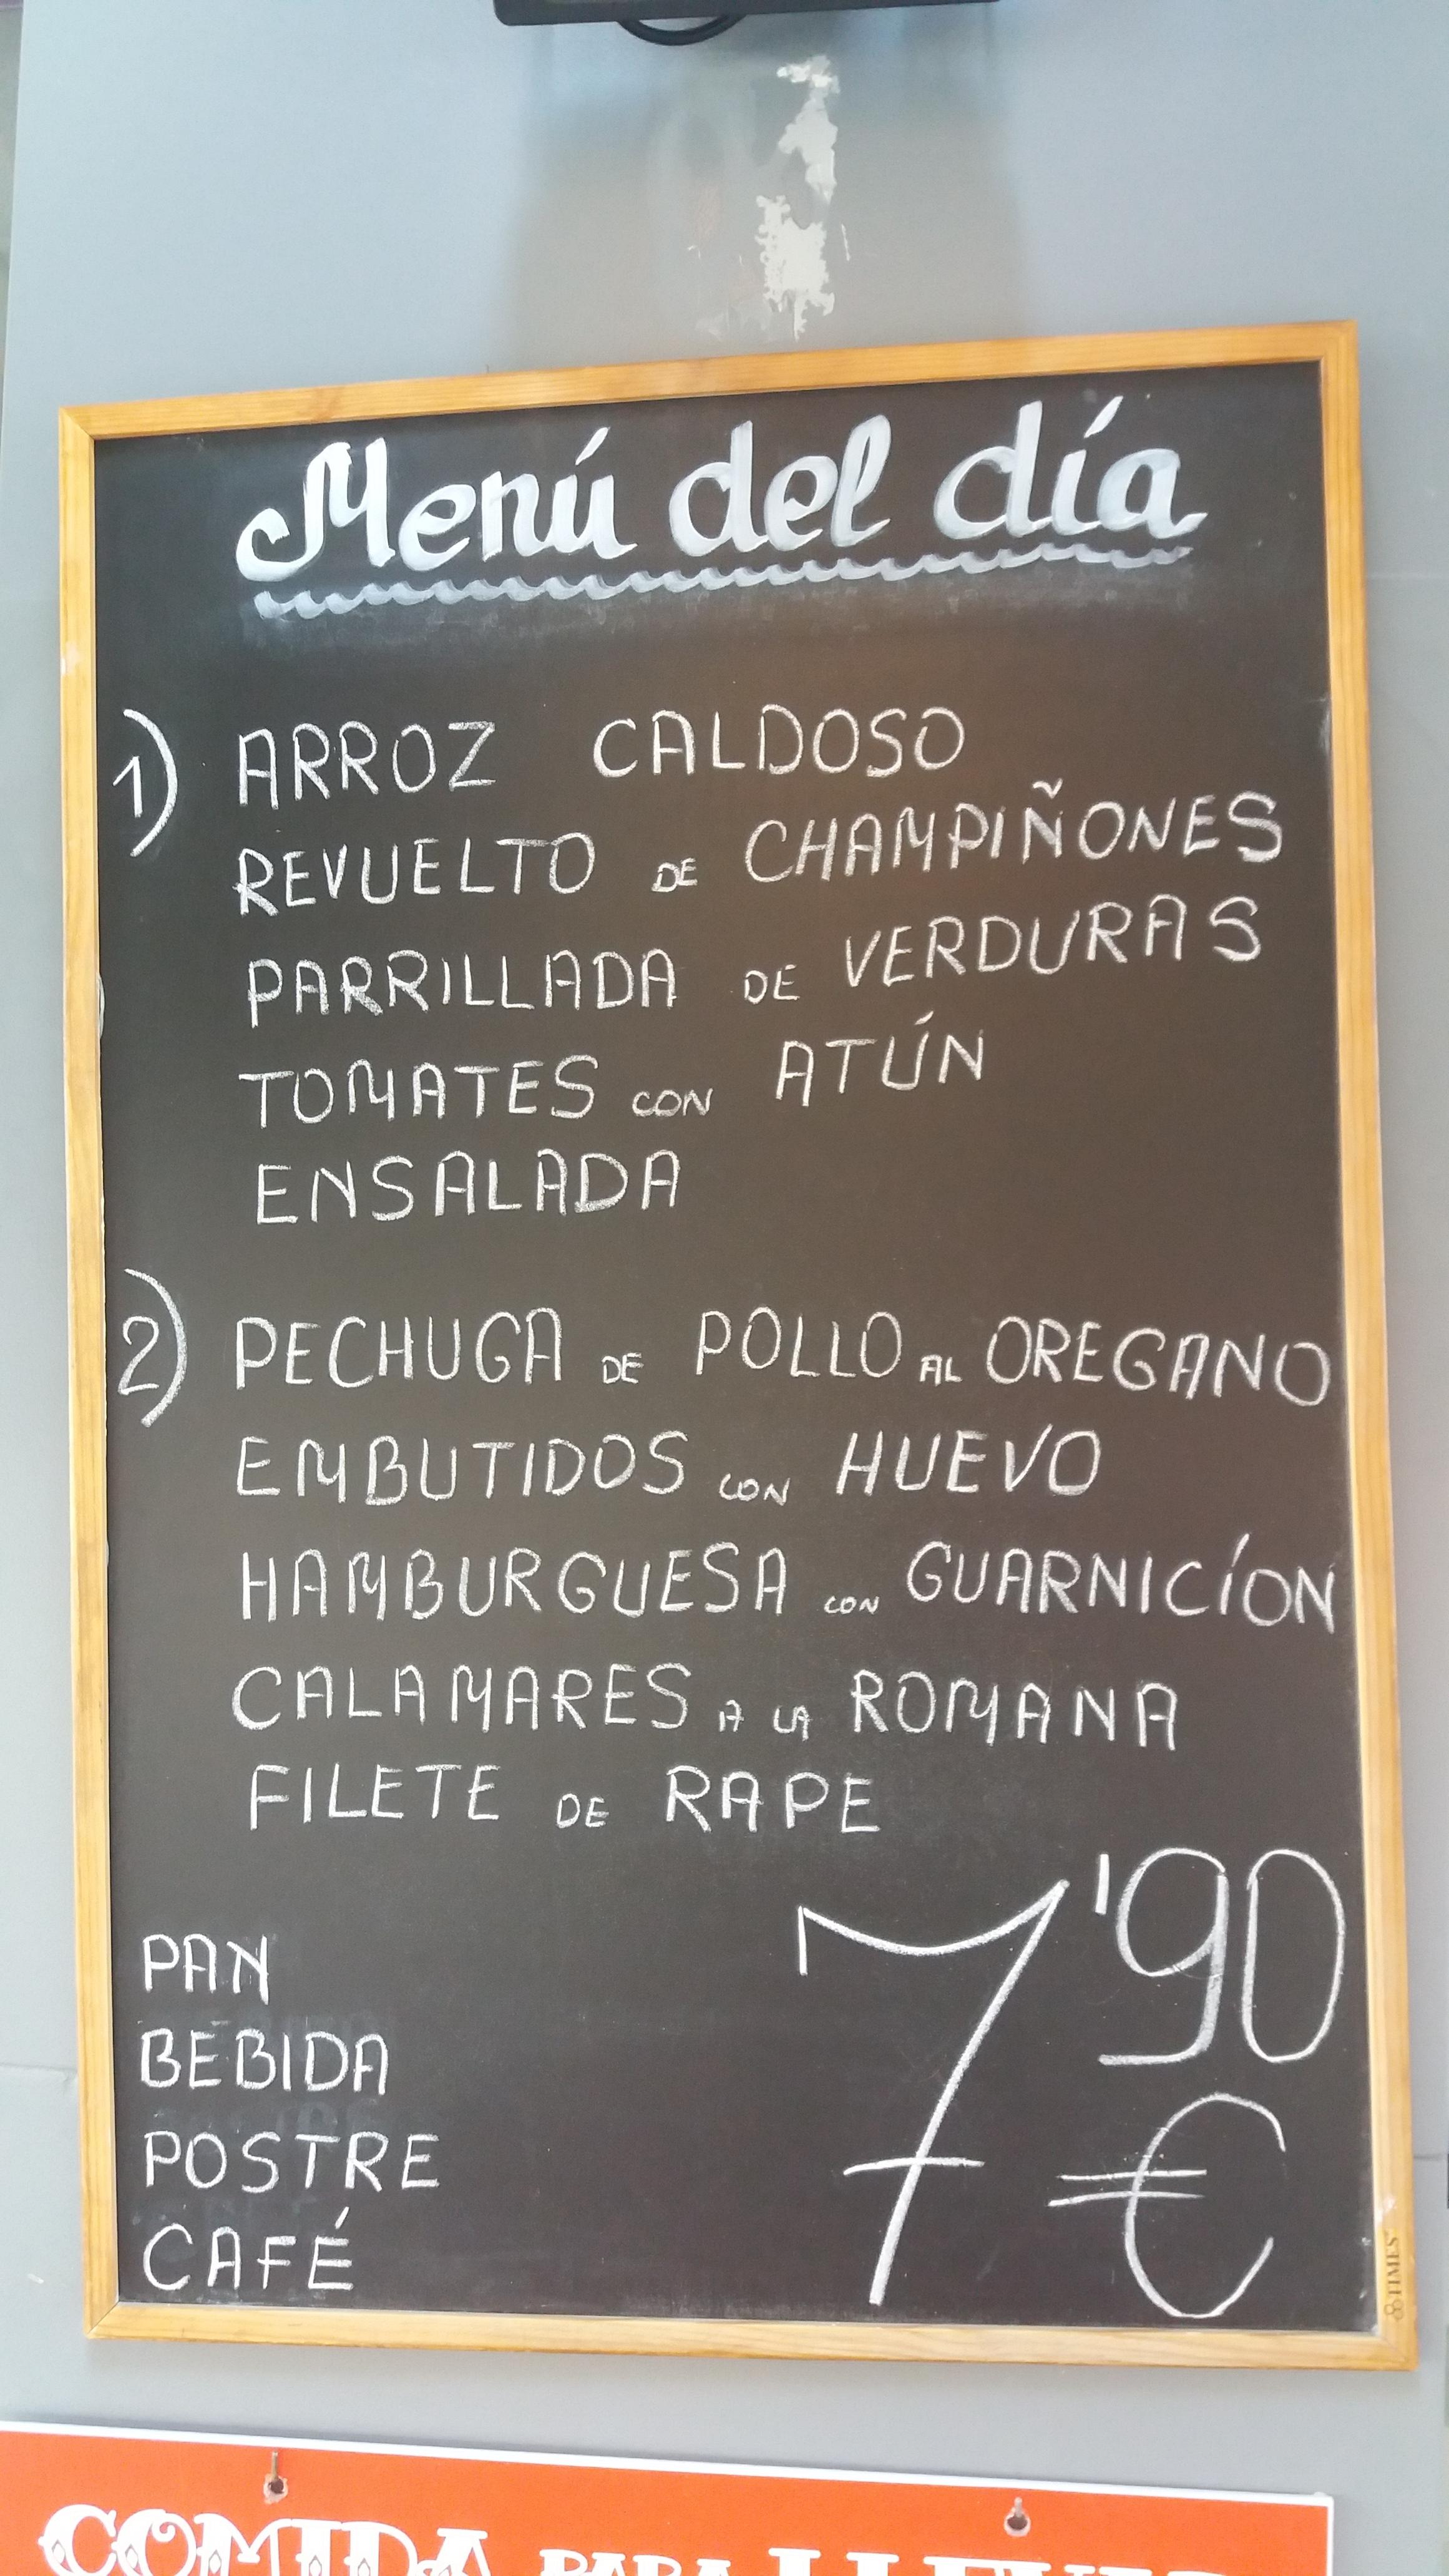 Menú del día
1) ARROZ CALDOSO
REVUELTO DE CHAMPIÑONES
PARRILLADA DE VERDURAS
TOMATES CON ATÚN
ENSALADA
2) PECHUGA DE POLLO AL OREGANO
EMBUTIDOS CON HUEVO
HAMBURGUESA CON GUARNICÍON
CALAMARES A LA ROMANA
FILETE DE RAPE
PAN
BEBIDA
POSTRE
CAFÉ
7'90
€
TIMES
COMIDA PARA LLEVAR